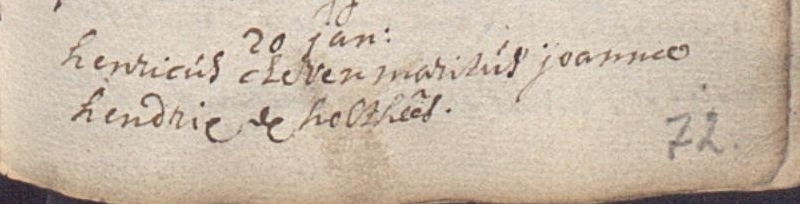 20 jan:
henricús cleven maritús joannæ
hendrix de holthees.
72.